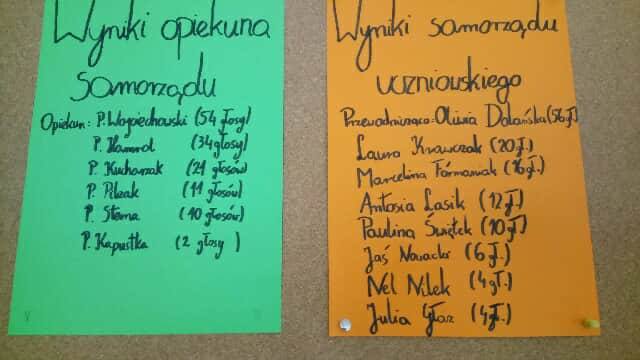 Wyniki opiekuna
samorządu
Opiekun: P. Wojciechowski (54 głosy)
P. Hamrol (34 głosy)
P. Kucharzak (21 głosów)
P. Pilzak (11 głosów)
P. Stoma (10 głosów)
P. Kapustka (2 głosy)
Wyniki samorządu
uczniowskiego
Przewodnicząca: Oliwia Dolańska (56 gł.)
Laura Krawczak (20 gł.)
Marcelina (16 gł.)
Antosia Lasik (12 gł.)
Paulina Świętek (10 gł.)
Jaś Nowacki (6 gł.)
Nel Nilek (4 gł.)
Julia (4 gł.)